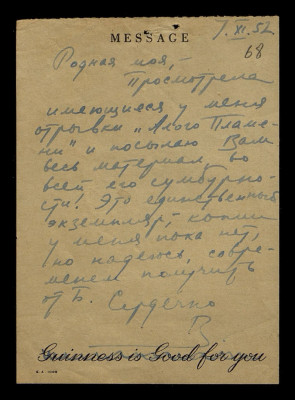 MESSAGE
7. XI. 52
68
Родная моя,-
Просмотрела
имеющиеся у меня
отрывки „Алого Пламе-
ни" и посылаю Вам
весь материал, во
всей его сумбурно-
сти! Это единственный
экземпляр,- копии
у меня пока нет,
но надеюсь, совре-
менем получить
от Б. Сердечно
В.
Guinness is Good for you